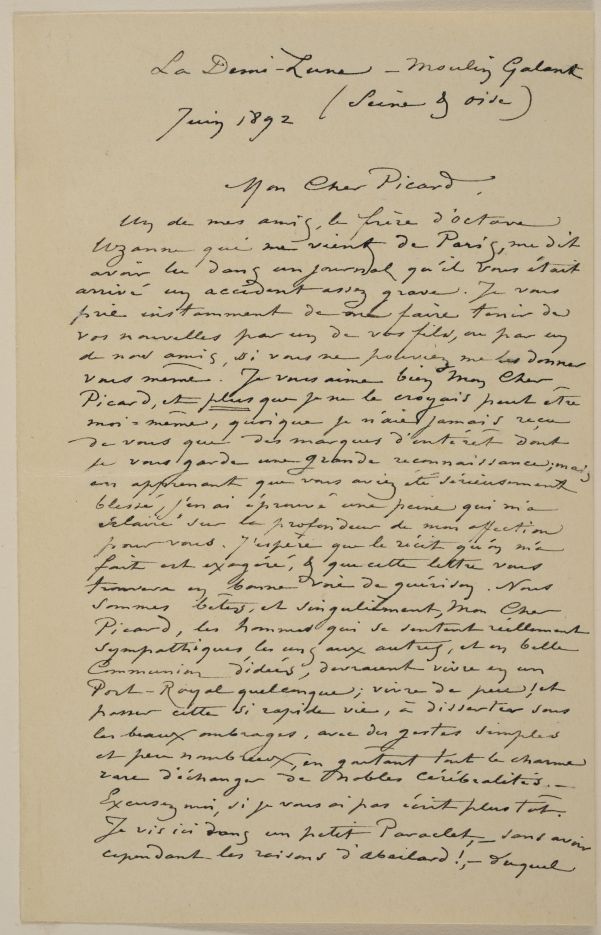 La Demi-Lune – Moulin Galant
(Seine & oise)
Juin 1892
Mon Cher Picard,
Un de mes amis, le frère d'octave
Uzanne qui me vient de Paris, me dit
avoir lu dans un journal qu'il vous était
arrivé un accident assez grave. Je vous
prie instamment de me faire tenir de
vos nouvelles par un de vos fils, ou par un
de nos amis, si vous ne pouviez me les donner
vous même. Je vous aime bien Mon Cher
Picard, et plus que je ne le croyais peut être
moi-même, quoique je n'aie jamais reçu
de vous que des marques d'intérêt dont
je vous garde une grande reconnaissance; mais
en apprenant que vous aviez été sérieusement
blessé, j'en ai éprouvé une peine qui m'a
éclairé sur la profondeur de mon affection
pour vous. J'espère que le récit qu'on m'a
fait est exagéré, & que cette lettre vous
trouvera en bonne voie de guérison. Nous
sommes bêtes, et singulièrement, Mon Cher
Picard, les hommes qui se sentent réellement
sympathiques les uns aux autres, et en belle
Communion d'idées, devraient vivre en un
Port-Royal quelconque; vivre de peu! et
passer cette si rapide vie, à disserter sous
les beaux ombrages, avec des gestes simples
et peu nombreux, en goutant tout le charme
rare d'échanger de nobles cérébralités. –
Excusez moi, si je vous ai pas écrit plus tôt.
Je vis ici dans un petit Paraclet, – sans avoir
cependant les raisons d'abeilard!, – duquel